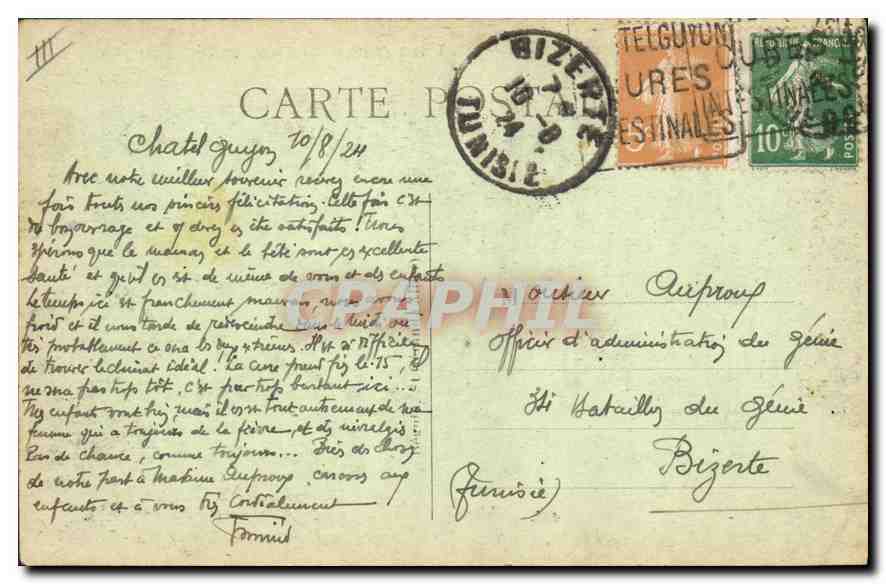 III
CARTE POSTALE
BIZERTE
7-
16-8
24
TUNISIE
TELGUYON
CURES
INTESTINALES
CURES
INTESTINALES
5
REPUBLIQUE FRANÇAISE
10
POSTES
Chatel guyon 10/8/24
Avec notre meilleur souvenir recevez encore une
fois toutes nos sincères félicitations. Cette fois c'est
du bel ouvrage et vs devez être satisfaits ! Nous
espérons que la maman et le bébé sont en excellente
santé et qu'il en est de même de vous et des enfants
Le temps ici est franchement mauvais, nous avons
froid et il nous tarde de redescendre dans le midi où
très probablement ce sera les deux extrêmes. Il est si difficile
de trouver le climat idéal. La cure prend fin le 15, il
ne sera pas trop tôt, c'est par trop bassant ici...
Nos enfants vont bien, mais il en est tout autrement de ma
femme qui a toujours de la fièvre, et des névralgies
Pas de chance, comme toujours... Bien des choses
de notre part à Madame Auproux, caresses aux
enfants et à vous très cordialement
Monsieur Auproux
Officier d'administration du génie
34 Bataillon du Génie
Bizerte
(Tunisie)
CPAPHIL